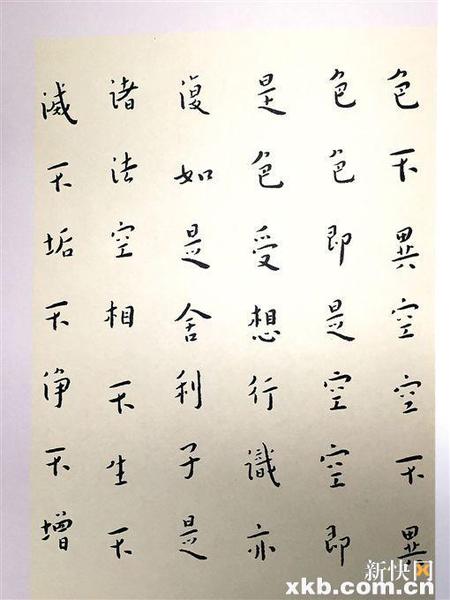 色不異空空不異
色色即是空空即
是色受想行識亦
復如是舍利子是
諸法空相不生不
滅不垢不淨不增
新快网
xkb.com.cn